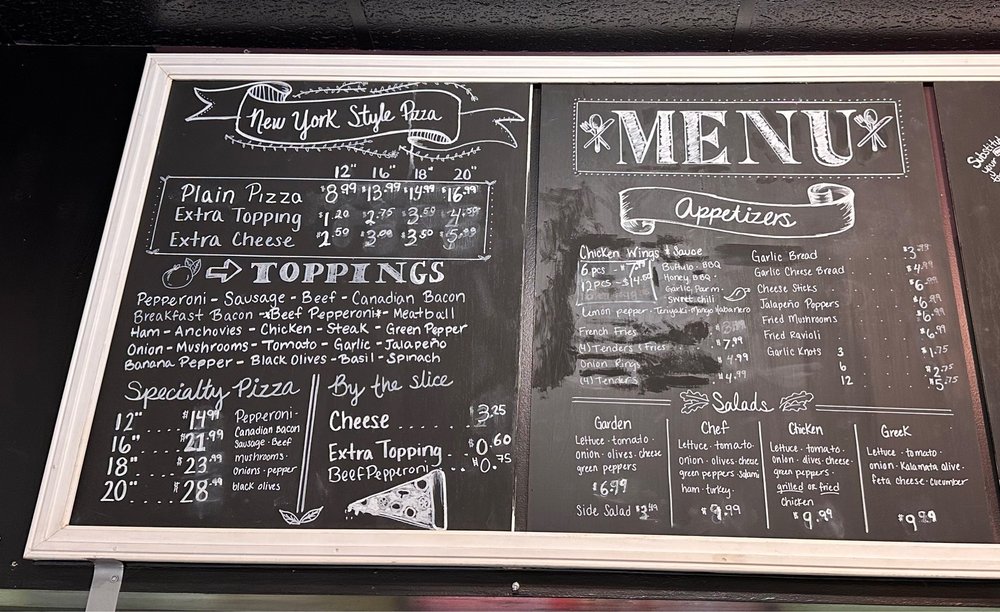 New York Style Pizza
12" 16" 18" 20"
Plain Pizza $8.99 $13.99 $14.99 $16.99
Extra Topping $1.20 $2.75 $3.50 4.50
Extra Cheese $2.50 $3.00 $3.50 $5.99
TOPPINGS
Pepperoni - Sausage - Beef - Canadian Bacon
Breakfast Bacon - *Beef Pepperoni* - Meatball
Ham - Anchovies - Chicken - Steak - Green Pepper
Onion - Mushrooms - Tomato - Garlic - Jalapeño
Banana Pepper - Black Olives - Basil - Spinach
Specialty Pizza
12" ..... $14.99
16" ..... $21.99
18" ..... $23.99
20" ..... $28.99
Pepperoni -
Canadian Bacon
Sausage · Beef
mushrooms ·
onions · pepper
black olives
By the slice
Cheese .... 3.25
Extra Topping ... $0.60
Beef Pepperoni ... $0.75
MENU
Appetizers
Chicken Wings & Sauce
6 pcs - $7.
12 pcs - $14.50
Buffalo · BBQ
Honey BBQ ·
Garlic Parm ·
Sweet chili
Lemon pepper · Teriyaki · Mango Habanero
French Fries
(4) Tenders & Fries $7.99
Onion Rings $4.99
(4) Tenders $4.99
Garlic Bread $3.
Garlic Cheese Bread $4.99
Cheese Sticks $6.
Jalapeño Poppers $6.99
Fried Mushrooms $6.99
Fried Ravioli $6.99
Garlic Knots 3 $1.75
6 $2.75
12 $5.75
Salads
Garden
Lettuce · tomato ·
onion · olives · cheese
green peppers
$6.99
Side Salad
Chef
Lettuce · tomato ·
onion · olives · cheese
green peppers · salami
ham · turkey ·
$9.99
Chicken
Lettuce · tomato ·
onion · olives · cheese ·
green peppers ·
grilled or fried
chicken
$9.99
Greek
Lettuce · tomato ·
onion · Kalamata olive ·
feta cheese · cucumber
$9.99
your